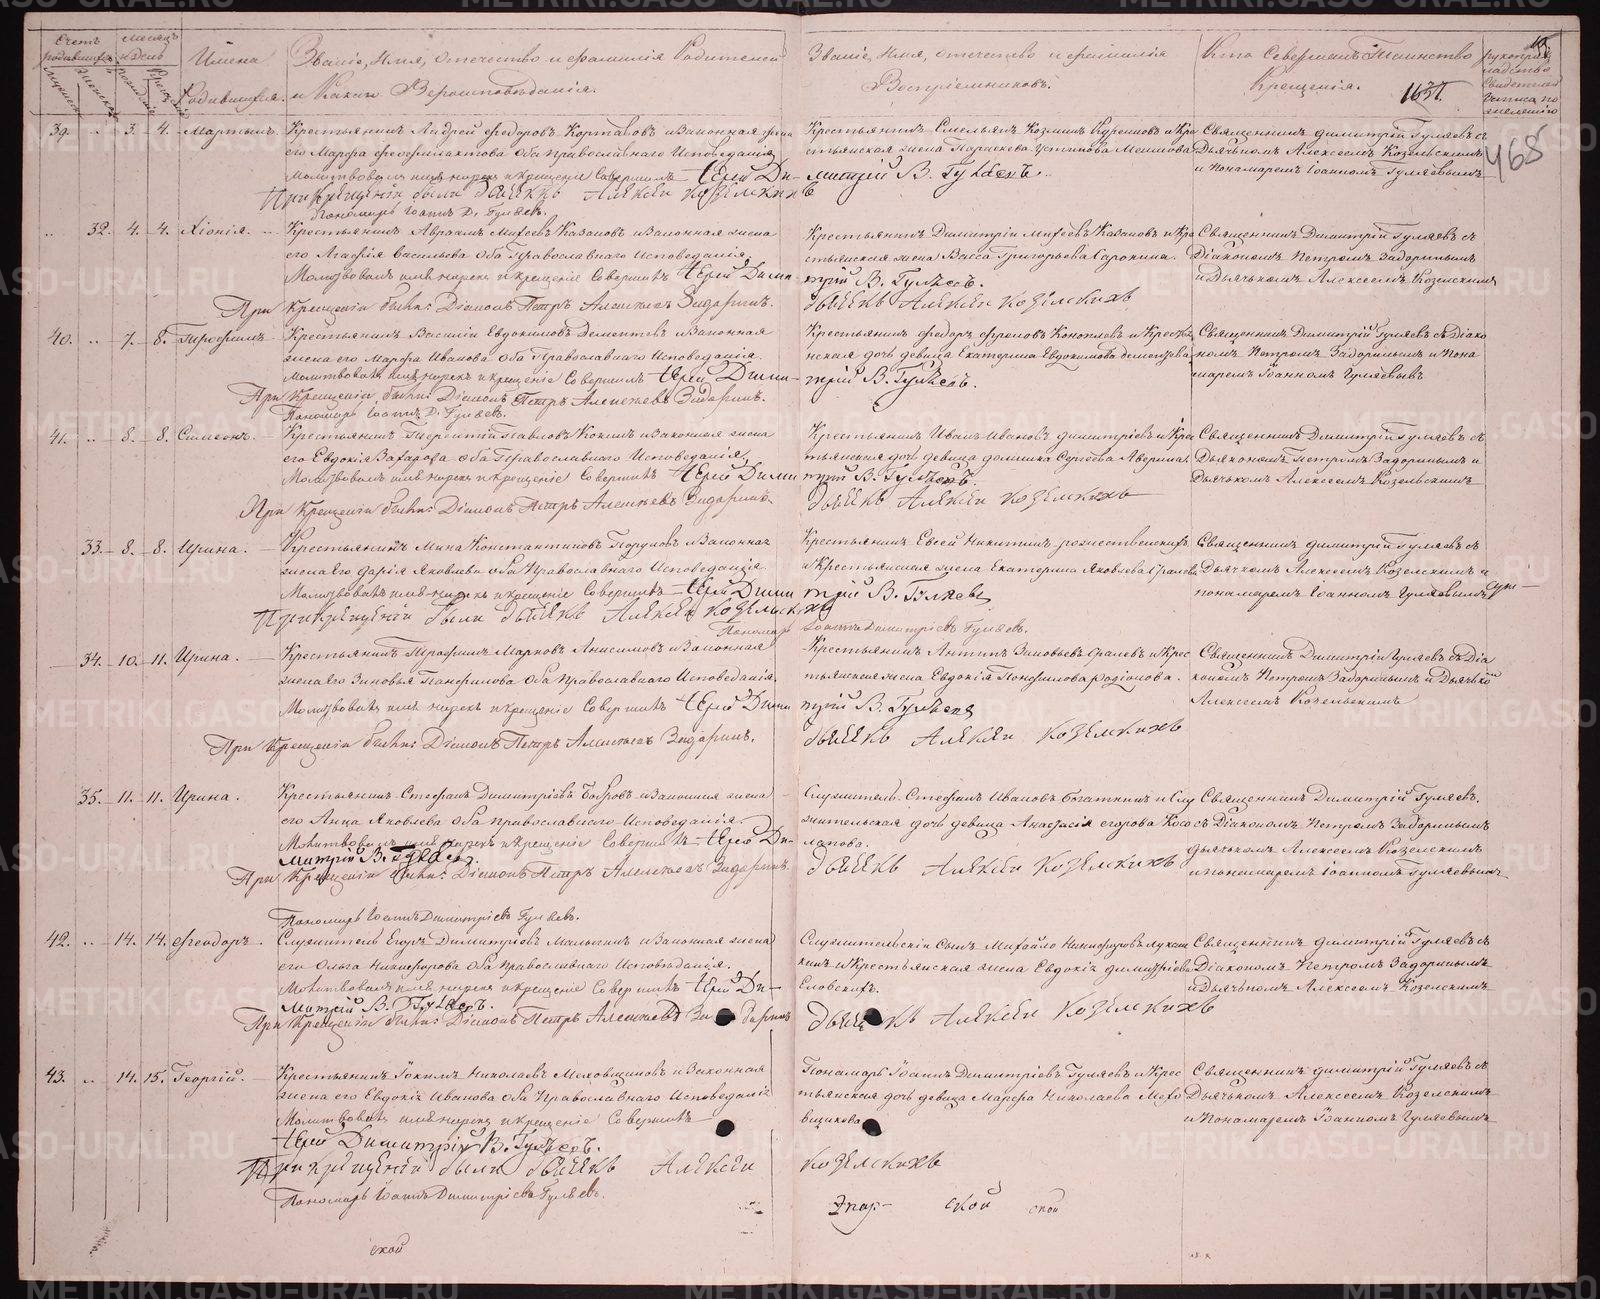 Счетъ родившихся
Мѣсяцъ и день
Имена Родившихся.
Званіе, Имя, отечество и фамилія Родителей и Какого Вероисповѣданія.
Званіе, Имя, отечество и фамилія Воспріемниковъ.
Кто Совершалъ Таинство Крещенія.
1637.
468
39. .. 3. 4. Мартынъ.
Крестьянинъ Андрей Федоровъ и Законная жена
его Марфа Феофилактова оба Православнаго Исповеданія
Молитвовалъ имя нарекъ и крещеніе Совершилъ Іерей Ди-
митрій В. Гуляевъ.
При крещеніи были дьячекъ Алексей Козельскихъ
Пономарь Іоаннъ Д. Гуляевъ.
Крестьянинъ Емельянъ Козминъ и Кре
стьянская жена Параскева Устинова
Священникъ Димитрій Гуляевъ съ
Дьячькомъ Алексеемъ Козельскимъ
и Пономаремъ Іоанномъ Гуляевымъ
.. 32. 4. 4. Хіонія.
Крестьянинъ Авраамъ Михеевъ Казановъ и Законная жена
его Агафія Васильева оба Православнаго Исповеданія
Молитвовалъ имя нарекъ и крещеніе Совершилъ Іерей Дими
трій В. Гуляевъ.
При Крещеніи были: Діаконъ Петръ Алексеевъ Задоринъ.
дьячекъ Алексей Козельскихъ
Крестьянинъ Димитрій Михеевъ Казановъ и Кре
стьянская жена Васса Григорьева Сарокина.
Священникъ Димитрій Гуляевъ съ
Діакономъ Петромъ Задоринымъ
и Дьячькомъ Алексеемъ Козелскимъ
40. .. 7. 8. Трофимъ
Крестьянинъ Василій Евдокимовъ Дементьевъ и Законная
жена его Марфа Иванова оба Православнаго Исповеданія.
Молитвовалъ имя нарекъ и крещеніе Совершилъ Іерей Дими-
трій В. Гуляевъ.
При Крещеніи были: Діаконъ Петръ Алексеевъ Задоринъ.
Пономарь Іоаннъ Д. Гуляевъ.
Крестьянинъ Федоръ Фроловъ Коноплевъ и Кресть
янская дочь девица Екатерина Евдокимова Дементьева
Священникъ Димитрій Гуляевъ съ Діако
номъ Петромъ Задоринымъ и Поно
маремъ Іоанномъ Гуляевымъ
41. .. 8. 8. Симеонъ.
Крестьянинъ Терентій Павловъ Кокинъ и Законная жена
его Евдокія Захарова оба Православнаго Исповеданія,
Молитвовалъ имя нарекъ и крещеніе Совершилъ Іерей Дими
трій В. Гуляевъ.
При Крещеніи были: Діаконъ Петръ Алексеевъ Задоринъ
дьячекъ Алексей Козельскихъ
Крестьянинъ Иванъ Ивановъ Димитріевъ и Крес
тьянская дочь девица Домника Сергеева Аверина.
Священникъ Димитрій Гуляевъ съ
Дьякономъ Петромъ Задоринымъ и
Дьячькомъ Алексеемъ Козельскимъ
33. 8. 8. Ирина.
Крестьянинъ Мина Константиновъ и Законная
жена его Дарія Яковлева оба Православнаго Исповеданія
Молитвовалъ имя нарекъ и крещеніе Совершилъ Іерей Дими
трій В. Гуляевъ
При крещеніи были дьячекъ Алексей Козельскихъ
Пономарь Іоаннъ Димитріевъ Гуляевъ.
Крестьянинъ Евсей Никитинъ рожественскихъ
и Крестьянская жена Екатерина Яковлева
Священникъ Димитрій Гуляевъ съ
Дьячкомъ Алексеемъ Козелскимъ и
пономаремъ Іоанномъ Гуляевымъ
34. 10. 11. Ирина.
Крестьянинъ Трофимъ Марковъ Анисимовъ и Законная
жена его Зиновья Панфилова оба Православнаго Исповеданія.
Молитвовалъ имя нарекъ и крещеніе Совершилъ Іерей Дими
трій В. Гуляевъ
При Крещеніи были: Діаконъ Петръ Алексеевъ Задоринъ.
дьячекъ Алексей Козельскихъ
Крестьянинъ Антипъ Зиновьевъ и Крес
тьянская жена Евдокія Панфилова родіонова.
Священникъ Димитрій Гуляевъ съ Діа
кономъ Петромъ Задоринымъ и Дьячькомъ
Алексеемъ Козельскимъ
35. 11. 11. Ирина.
Крестьянинъ Стефанъ Димитріевъ Бобровъ и Законная жена
его Анна Яковлева оба православнаго Исповеданія.
Молитвовалъ имя нарекъ и крещеніе Совершилъ Іерей Ди-
митрій В. Гуляевъ.
При Крещеніи были: Діаконъ Петръ Алексеевъ Задоринъ.
дьячекъ Алексей Козельскихъ
Пономарь Іоаннъ Димитріевъ Гуляевъ.
Служитель Стефанъ Ивановъ Богаткинъ и Слу
жительская дочь девица Анастасія Егорова Косо
лапова.
Священникъ Димитрій Гуляевъ.
съ Діакономъ Петромъ Задоринымъ
дьячькомъ Алексеемъ Козелскимъ
и пономаремъ Іоанномъ Гуляевымъ
42. .. 14. 14. Феодоръ.
Служитель Егоръ Димитріевъ Малыгинъ и Законная жена
его Ольга Никифорова оба православнаго Исповѣданія.
Молитвовалъ имя нарекъ и крещеніе Совершилъ Іерей Ди-
митрій В. Гуляевъ.
При Крещеніи были: Діаконъ Петръ Алексеевъ Задоринъ
дьячекъ Алексей Козельскихъ
Служительскій Сынъ Михайло Никифоровъ
и Крестьянская жена Евдокія Димитріева
Еловскихъ.
Священникъ Димитрій Гуляевъ съ
Діакономъ Петромъ Задоринымъ
и Дьячькомъ Алексеемъ Козелскимъ
43. .. 14. 15. Георгій.
Крестьянинъ Іакимъ Николаевъ Меховщиковъ и Законная
жена его Евдокія Иванова оба Православнаго Исповеданія
Молитвовалъ имя нарекъ и крещеніе Совершилъ
Іерей Димитрій В. Гуляевъ.
При крещеніи были дьячекъ Алексей Козельскихъ
Пономарь Іоаннъ Димитріевъ Гуляевъ.
Пономарь Іоаннъ Димитріевъ Гуляевъ и Крес
тьянская дочь девица Марфа Николаева Мехо
вщикова
Священникъ Димитрій Гуляевъ съ
Дьячькомъ Алексеемъ Козелскимъ
и Пономаремъ Іоанномъ Гуляевымъ
ской ской
ской
METRIKI.GASO-URAL.RU